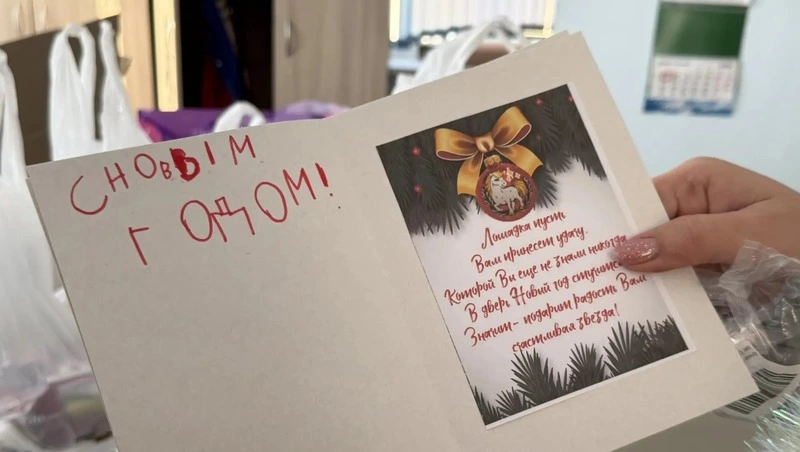 С НОВЫМ
ГОДОМ!
Лошадка пусть
Вам принесет удачу.
Которой Ви еще не знали никогда
В дверь Новый год стучится
Значит - подарит радость Вам
счастливая звезда!